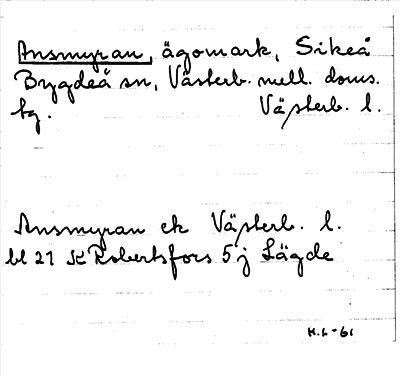 Ansmyran, ägomark, Sikeå
Bygdeå sn, Västerb. mell. doms.
tg. Västerb. l.
Ansmyran ek Västerb. l.
bl 21 K Robertsfors 5 j Lägde
K.L-61